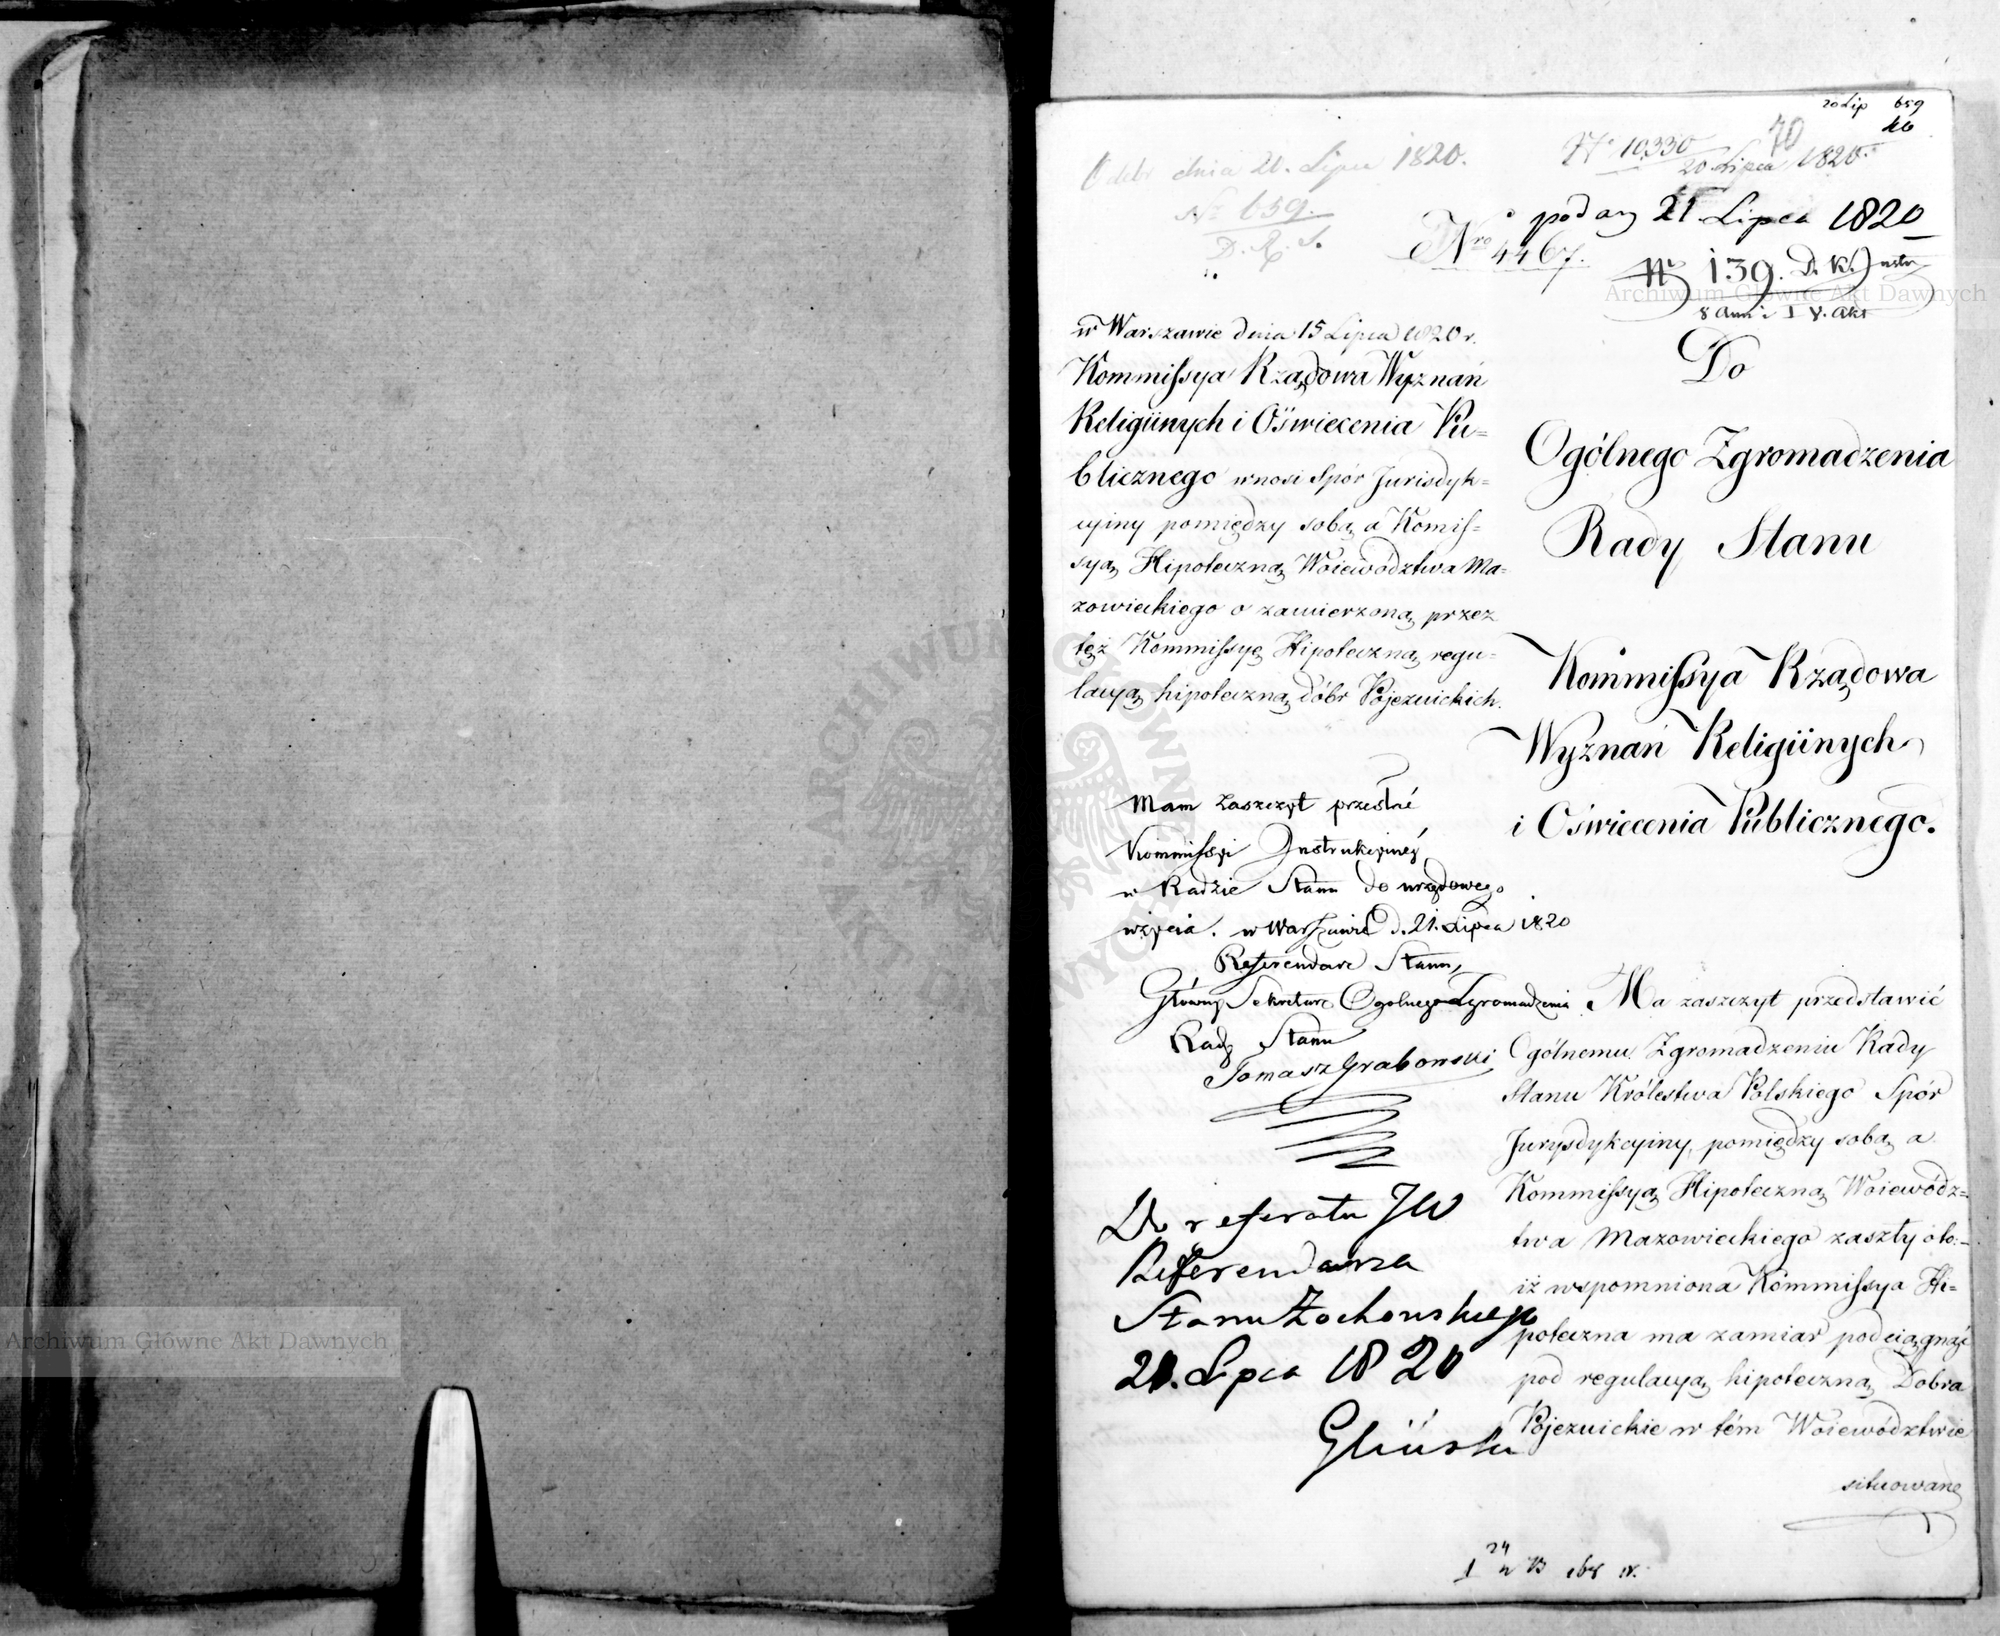 20 Lip 659
40
Odebr dnia 21. Lipca 1820.
No 659.
D. R. S.
No 10,330
20 Lipca 1820.
podany 21 Lipca 1820
Nro 4467.
No 139. D. K. Instr
w Warszawie dnia 15 Lipca 1820 r.
Kommissya Rządowa Wyznań
Religiinych i Oświecenia Pu=
blicznego wnosi Spór Jurisdyk=
cyiny pomiędzy sobą a Komis=
syą Hipoteczną Woiewództwa Ma=
zowieckiego o zamierzoną przez
też Kommissyę Hipoteczną regu=
lacyą hipoteczną dóbr Pojezuickich.
Mam zaszczyt przesłać
Kommissyi Instrukcyiney
w Radzie Stanu do urzędowego
użycia. w Warszawie d. 21. Lipca 1820
Referendarz Stanu,
Główny Sekretarz Ogolnego Zgromadzenia
Rady Stanu
Tomasz Grabowski
Do referatu JW
Referendarza
Stanu Żochowskiego
21. Lipca 1820
Gliński
Do
Ogólnego Zgromadzenia
Rady Stanu
Kommissya Rządowa
Wyznań Religiinych
i Oświecenia Publicznego.
Ma zaszczyt przedstawić
Ogólnemu Zgromadzeniu Rady
Stanu Królestwa Polskiego Spór
Jurysdykcyiny, pomiędzy sobą a
Kommissyą Hipoteczną Woiewódz=
twa Mazowieckiego zaszły oto:
iż wspomniona Kommissya Hi=
poteczna ma zamiar podciągnąć
pod regulacyą hipoteczną Dobra
Pojezuickie w tém Woiewództwie
situowane
Archiwum Główne Akt Dawnych
Archiwum Główne Akt Dawnych